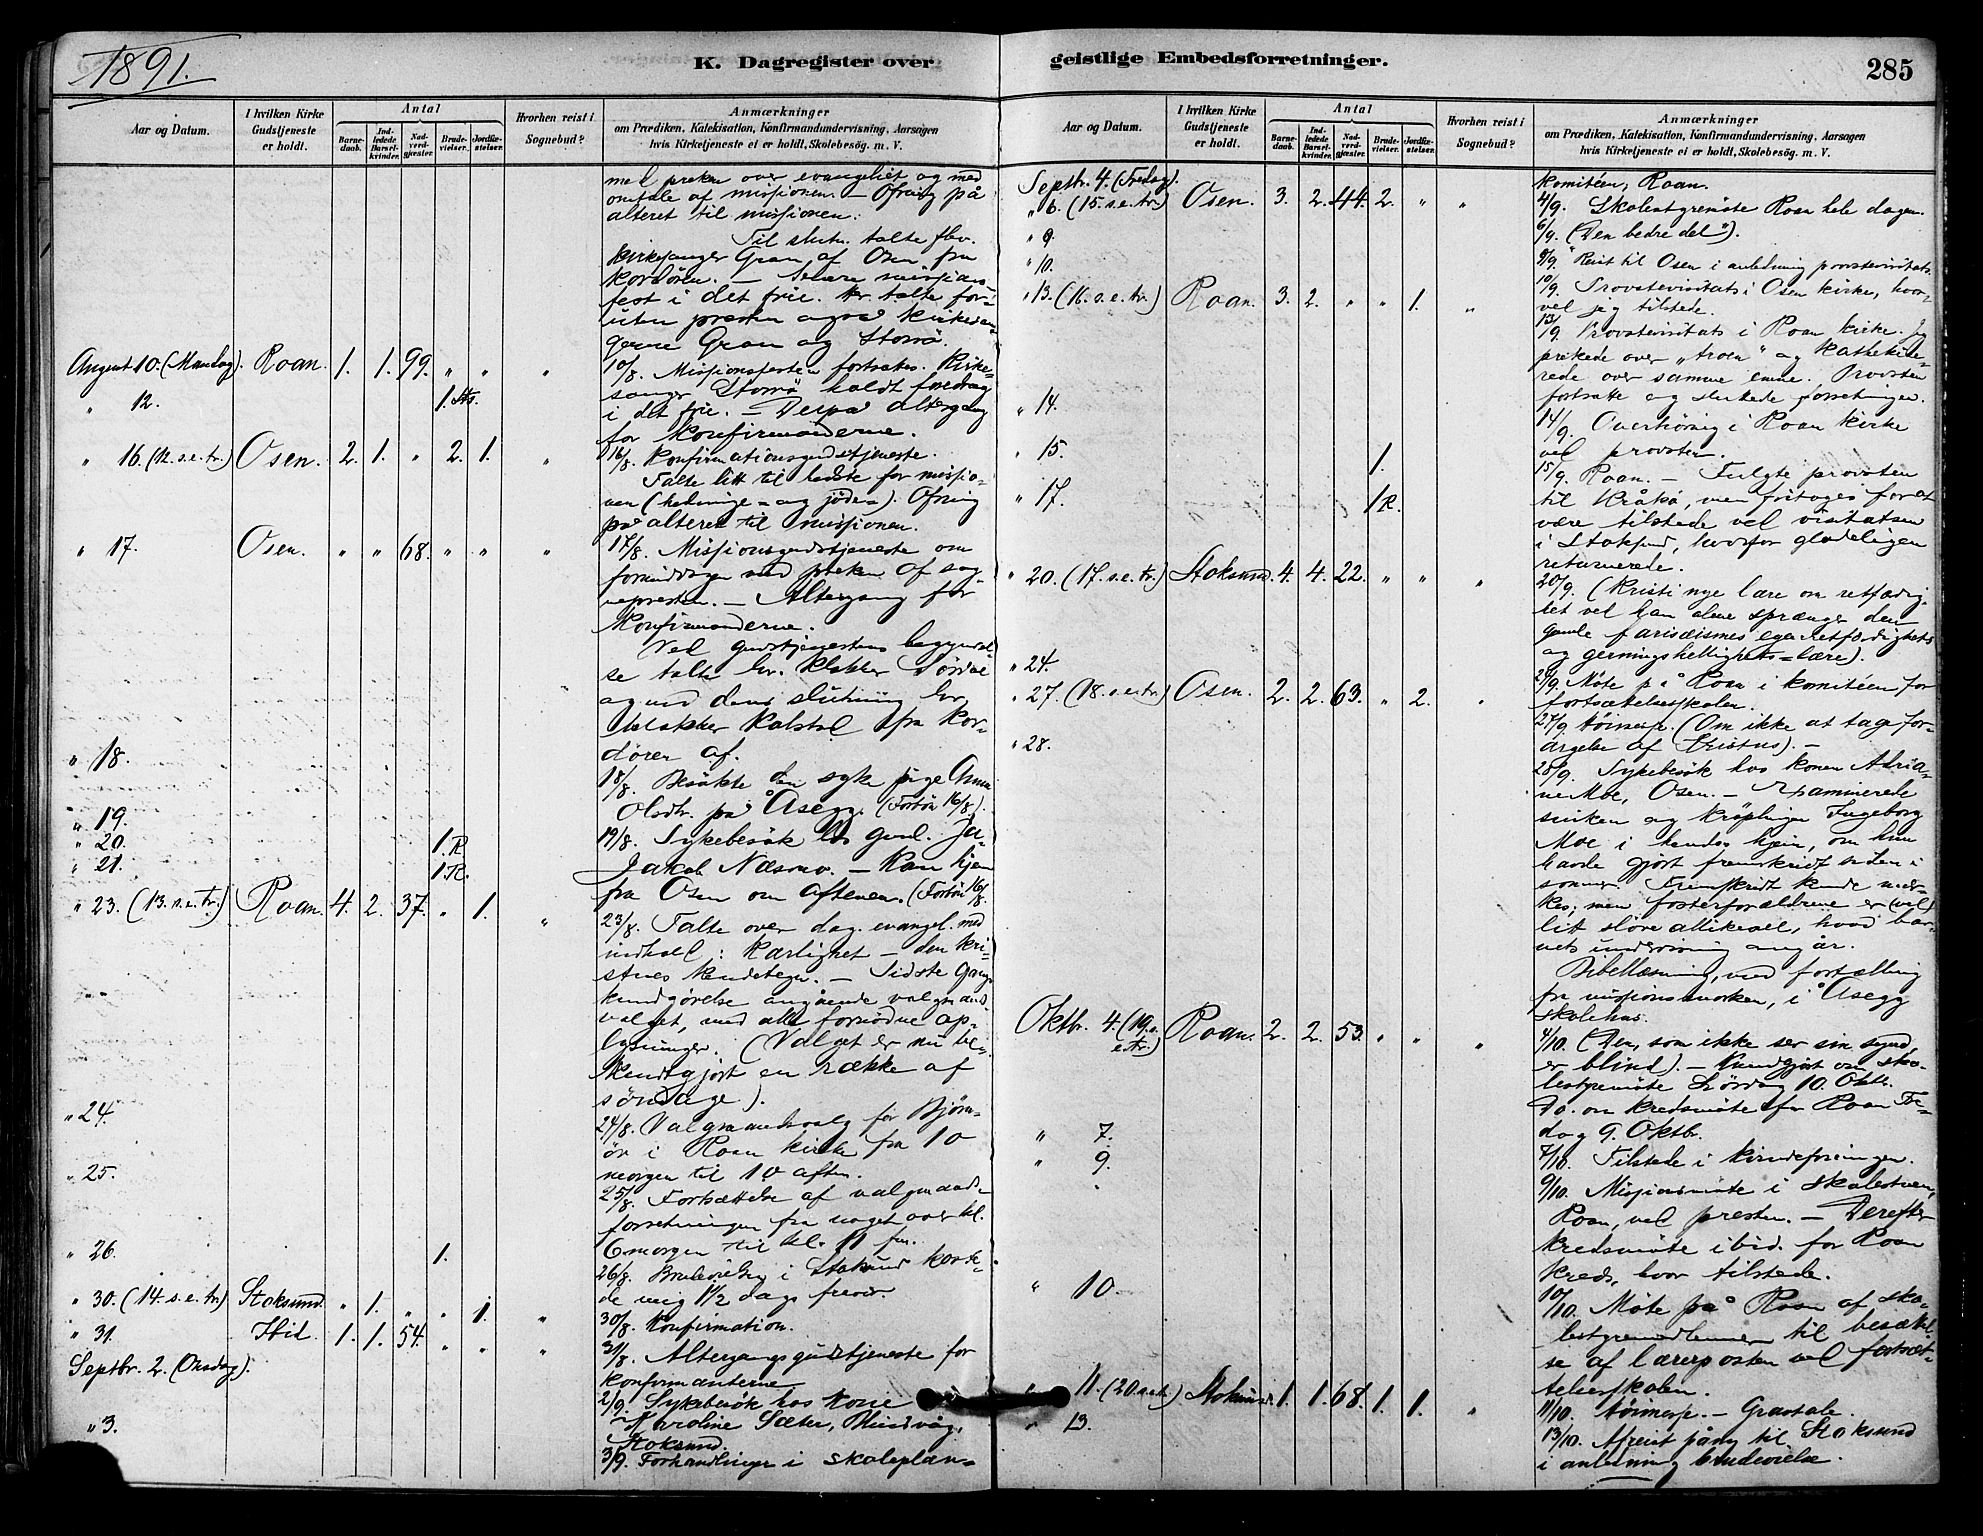 1891.
K. Dagregister over
geistlige Embedsforretninger.
285
Aar og Datum.
I hvilken Kirke
Gudstjeneste
er holdt.
Antal
Barne-
daab.
Ind-
ledede
Barsel-
kvinder.
Nad-
verd-
gjæster.
Brude-
vielser.
Jordfæ-
stelser.
Hvorhen reist i
Sognebud?
Anmærkninger
om Prædiken, Katekisation, Konfirmandundervisning, Aarsagen
hvis Kirketjeneste ei er holdt, Skolebesøg. m. V.
med preken over evangeliet og med
omtale af missionen. — Ofring på
alteret til missionen.
Til slutn. talte flev.
kirkesanger Gran af Osen fra
kordören. — Senere missions-
fest i det frie. Her talte for-
uten presten også kirkesan-
gerne Gran og Storrö.
August 10. (Mandag). Roan. 1. 1. 99. " " "
10/8. Missionsfesten fortsattes. Kirke-
sanger Storrö holdt foredrag
" 12. 1. Sts.
i det frie. — Derpå altergang
for konfirmanderne.
" 16. (12. s. e. tr.) Osen. 2. 1. " 2. 1. "
16/8. Konfirmationsgudstjeneste.
Talte litt til bedste for missio-
nen (hedninge- og jöde-). Ofring
på alteret til missionen.
" 17. Osen. " " 68. " " "
17/8. Missionsgudstjeneste om
formiddagen med preken af sog-
nepresten. — Altergang for
konfirmanderne.
Ved gudstjenestens begyndel-
se talte hr. klokker Sördal
og ved dens slutning hr.
klokker Kalstad fra kor-
dören af.
" 18.
18/8. Besökte den syke pige Anna
Olsdtr. på Åsegg. (Forbön 16/8).
" 19.
19/8. Sykebesök hos gml. Ja-
" 20. 1. R.
Jakob Næsmo. — Kom hjem
" 21. 1. R.
fra Osen om aftenen. (Forbön 16/8.
" 23. (13. s. e. tr.) Roan. 4. 2. 37. " 1. "
23/8. Talte over dag. evangel. med
indhold: Kærlighet — den kri-
stnes kendetegn. — Sidste gangs
kundgörelse angående valgmands-
valget, med alle fornödne op-
lysninger. (Valget er nu be-
kendtgjort en række af
söndage).
" 24.
24/8. Valgmandsvalg for Björn-
ör i Roan kirke fra 10
morgen til 10 aften.
" 25.
25/8. Fortsættelse af valgmands-
forretningen fra noget over kl.
6 morgen til kl. 11 fm.
" 26. 1.
26/8. Brudevielse i Stoksund kosk-
de mig 1 1/2 dags freior.
" 30. (14. s. e. tr.) Stoksund. " 1. " " 1. "
30/8. Konfirmation.
" 31. Ibid. 1. 1. 54. " " "
31/8. Altergangsgudstjeneste for
konfirmanterne
Septbr. 2. (Onsdag).
2/9. Sykebesök hos kone
Karoline Sæter, Blindvåg,
Stoksund.
" 3.
3/9. Forhandlinger i skoleplan-
Aar og Datum.
I hvilken Kirke
Gudstjeneste
er holdt.
Antal
Barne-
daab.
Ind-
ledede
Barsel-
kvinder.
Nad-
verd-
gjæster.
Brude-
vielser.
Jordfæ-
stelser.
Hvorhen reist i
Sognebud?
Anmærkninger
om Prædiken, Katekisation, Konfirmandundervisning, Aarsagen
hvis Kirketjeneste ei er holdt, Skolebesøg. m. V.
komitéen, Roan.
Septbr. 4. (Fredag).
4/9. Skolestyremöte Roan hele dagen.
" 6. (15. s. e. tr.) Osen. 3. 2. 44. 2. " "
6/9. (Den bedre del").
" 9.
9/9. Reist til Osen i anledning provstevisitats.
" 10.
10/9. Provstevisitats i Osen kirke, hvor-
ved jeg tilstede.
" 13. (16. s. e. tr.) Roan. 3. 2. " " 1. "
13/9. Provstevisitats i Roan kirke. Jeg
prekede over „troen" og kathekise-
rede over samme emne. Provsten
fortsatte og sluttede forretningen.
" 14.
14/9. Overhöring i Roan kirke
ved provsten.
" 15. 1.
15/9. Roan. — Fulgte provsten
til Kråkö, men fritoges for at
" 17. 1 R.
være tilstede ved visitatsen
i Stoksund, hvorfor gladeligen
returnerede.
" 20. (17. s. e. tr.) Stoksund. 4. 4. 22. " " "
20/9. (Kristi nye lære om retfædig-
het ved ham alene sprænger den
gamle farisæismes egenretfærdigheds
og gerningshellighets-lære).
" 24.
24/9. Möte på Roan i komitéen for
fortsættelsesskolen.
" 27. (18. s. e. tr.) Osen. 2. 2. 63. " 2. "
27/9. Höimesse. (Om ikke at tage for-
argelse af Kristus). —
" 28.
28/9. Sykebesök hos konen Adria-
ne Moe, Osen. — Examinerede
Moe i hendes hjem, om hun
havde gjort fremskridt siden i
sommer. Fremskridt kunde mær-
kes; men fosterforældrene er (vel)
lit slöve allikevel, hvad bar-
nets undervisning angår.
Bibellæsning, med fortælling
fra missionsmarken, i Åsegg
skolehus.
Oktbr. 4. (19. s. e. tr.) Roan. 2. 2. 53. " " "
4/10. (Den, som ikke ser sin synd
er blind). — Kundgjort om sko-
lestyremöte Lördag 10. Oktb.
Do. om kredsmöte for Roan Fre-
dag 9. Oktbr.
" 7.
7/10. Tilstede i kvindeforeningen.
" 9.
9/10. Missionsmöte i skolestuen,
Roan, ved presten. — Derefter
kredsmöte ibid. for Roan
kreds, hvor tilstede.
" 10.
10/10. Möte på Roan af sko-
lestyremedlemmer til besættel-
se af lærerposten ved fortsæt-
telsesskolen.
" 11. (20. s. e. tr.) Stoksund. 1. 1. 68. 1. 1. "
11/10. Höimesse. — Gravtale.
" 13.
13/10. Afreist påny til Stoksund
i anledning brudevielse.